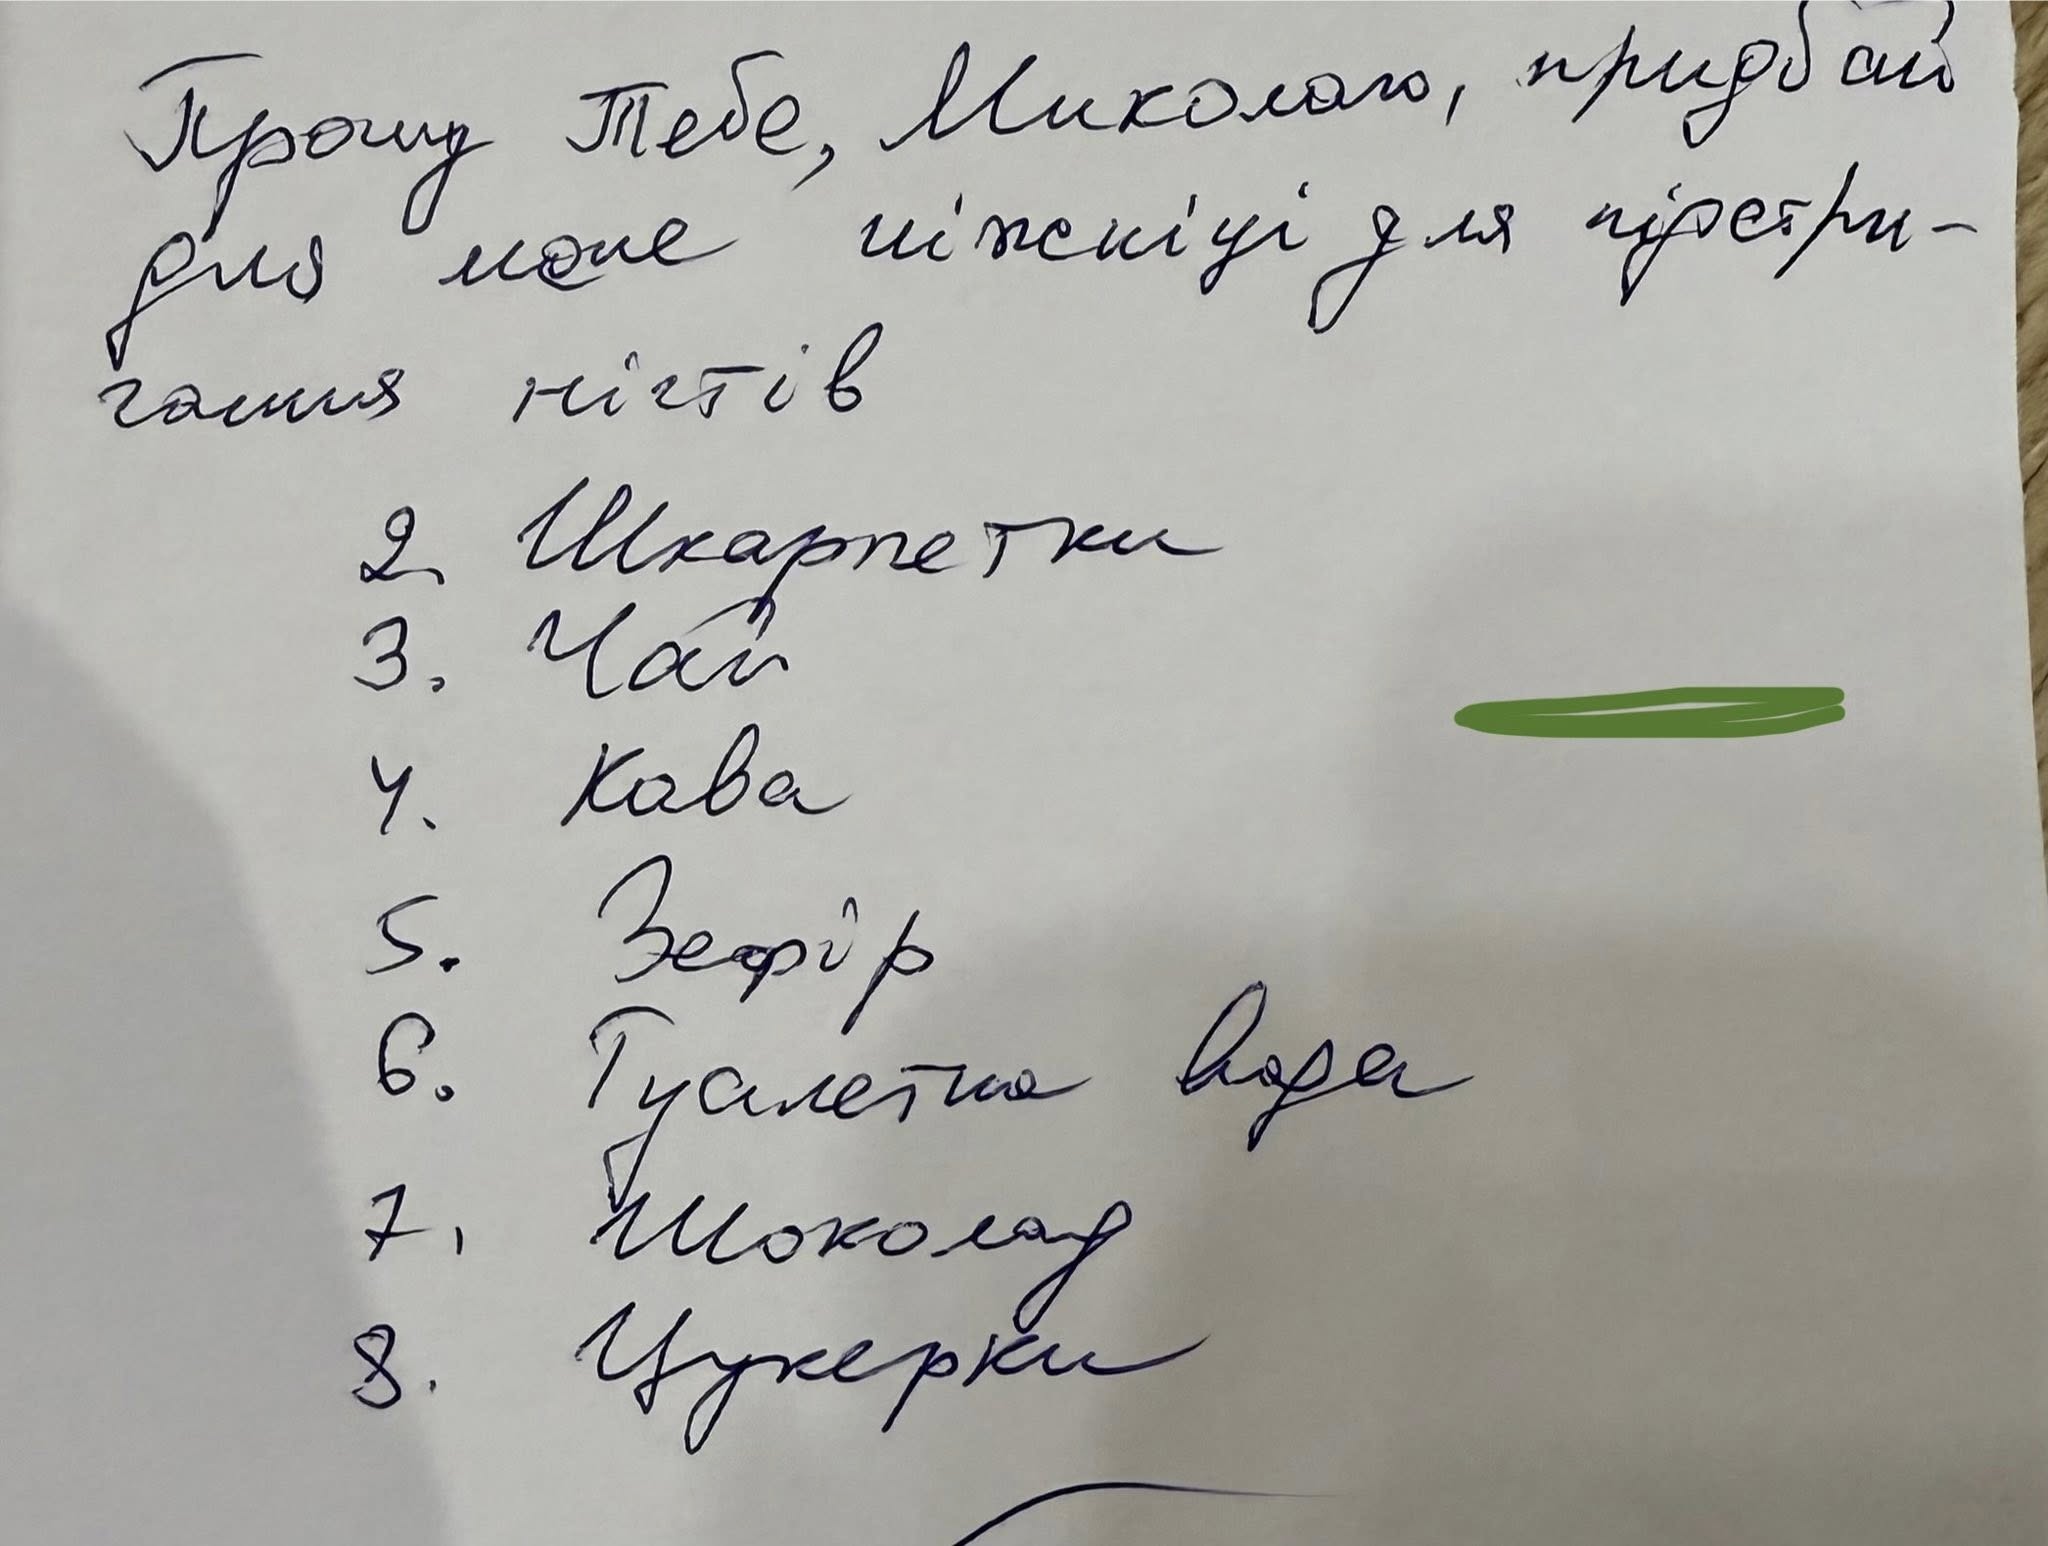 Прошу Тебе, Миколаю, придбай
для мене ніжніці для підстри-
гання нігтів
2. Шкарпетки
3. Чай
4. Кава
5. Зефір
6. Туалетна вода
7. Шоколад
8. Цукерки